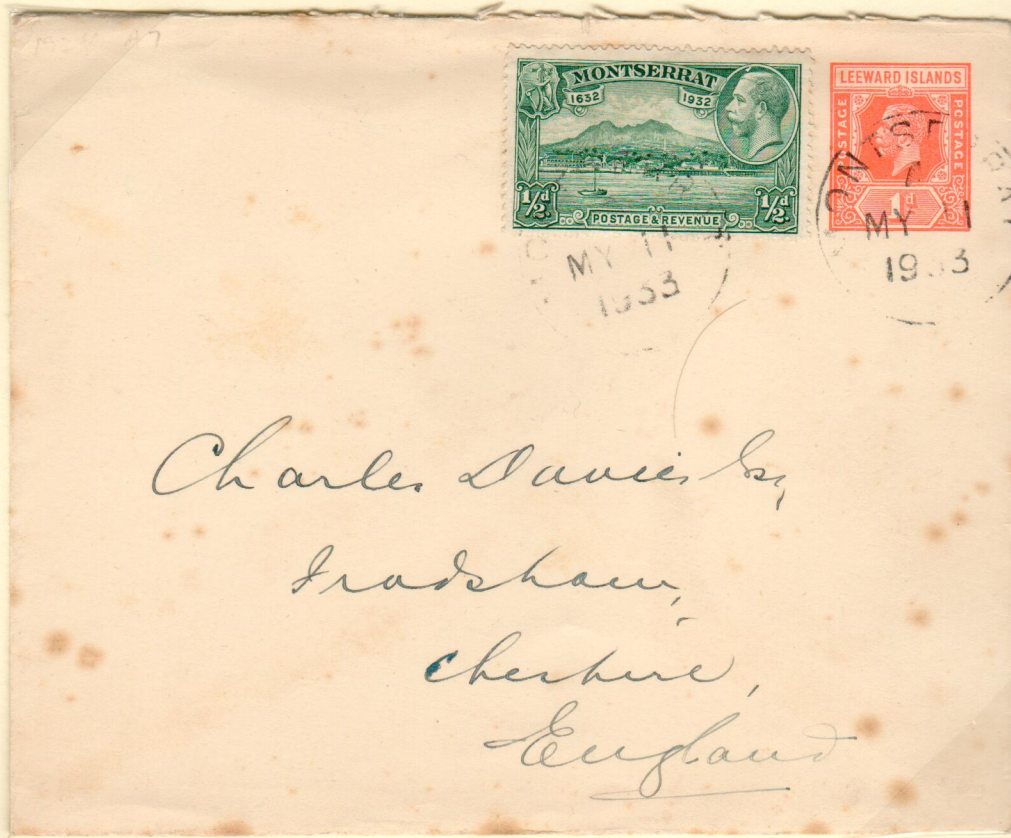 MONTSERRAT
1632 1932
½d ½d
POSTAGE & REVENUE
LEEWARD ISLANDS
POSTAGE POSTAGE
1d
MY 11
1933
MY 1
19 33
Charles Davies Esq,
Frodsham,
Cheshire,
England